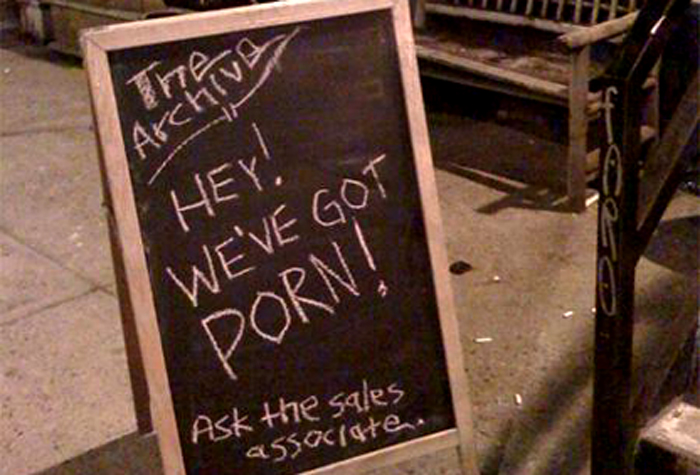 The
Archive
HEY!
WE'VE GOT
PORN!
Ask the sales
associate.
fARO